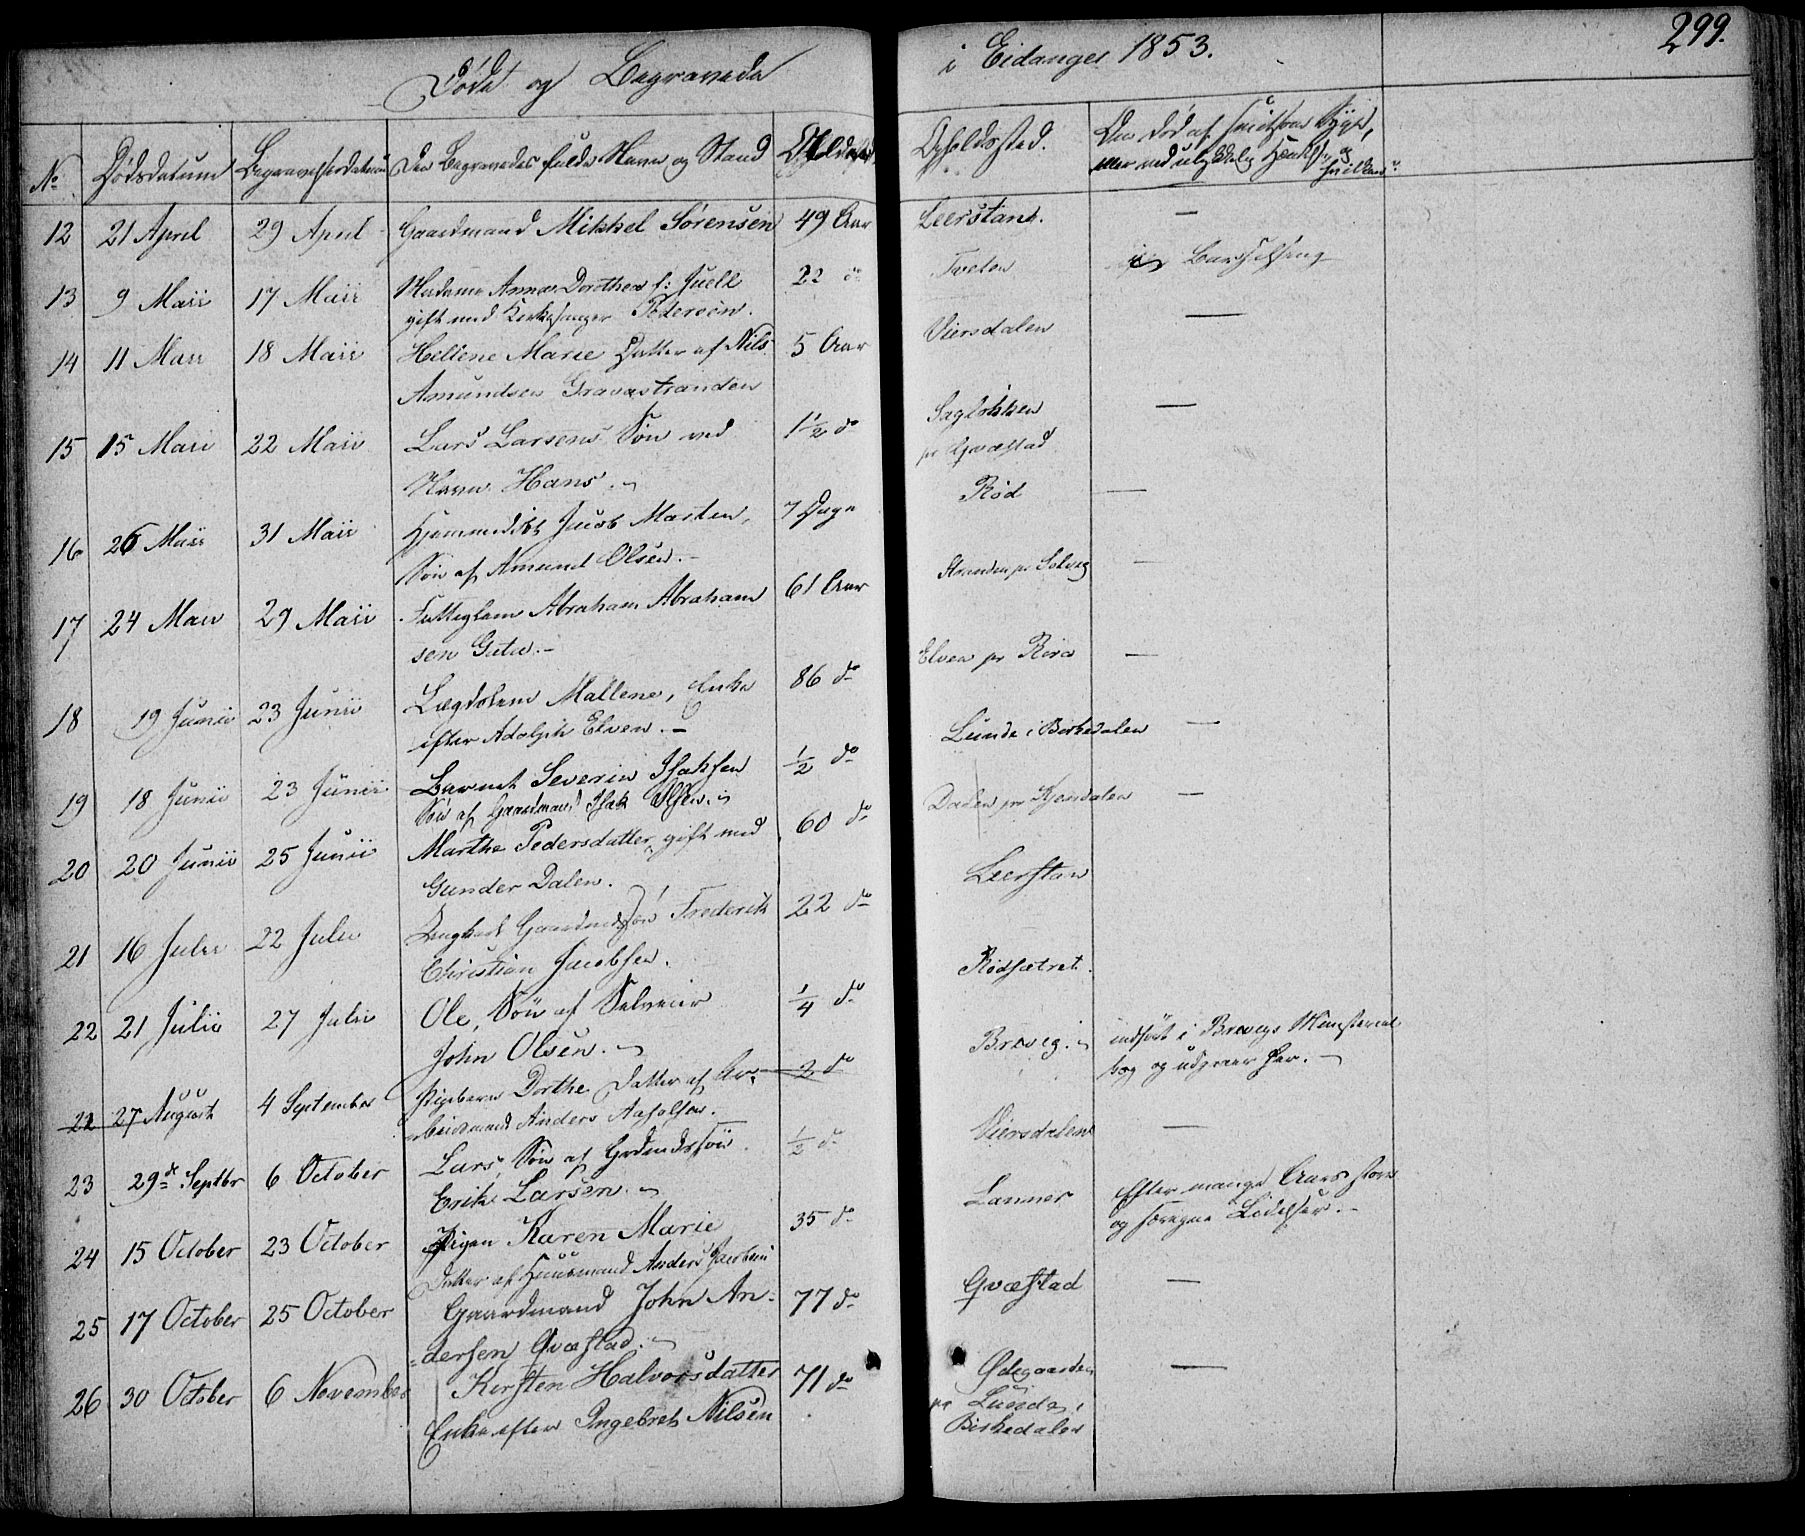 Døde og Begravede i Eidanger 1853. 299.
No. Dødsdatum Begravelsesdatum Den Begravedes fulde Navn og Stand Alder Opholdssted. Om død af smitsom Syge,
eller ved ulykkelig Hændelse og hvilken
12 21 April 29 April Gaardmand Mikkel Sørensen 49 Aar Leerstang. —
13 9 Maii 17 Maii Madame Anne Dorothea f: Juell 22 do Tveten i Barselseng
gift med Kirkesanger Pedersen.
14 11 Maii 18 Maii Hellene Marie Datter af Nils 5 Aar Viersdalen —
Amundsen Gravastranden
15 15 Maii 22 Maii Lars Larsens Søn ved 1½ do Sagløkken —
Navn Hans. pr Qvæstad
16 26 Maii 31 Maii Hjemmedøbt Jacob Marten, 7 Dage Rød —
Søn af Amund Olsen. —
17 24 Maii 29 Maii Fattiglem Abraham Abraham 61 Aar Stranden pr Solvig —
sen —
18 19 Junii 23 Junii Lægdslem Mallene, Enke 86 do Elven pr Røra —
efter Adolph Elven. —
19 18 Junii 23 Junii Barnet Severin Isaksen ½ do Lunde i Birkedalen —
Søn af Gaardmand Isak Olsen.
20 20 Junii 25 Junii Marthe Pedersdatter, gift med 60 do Dalen pr —
Gunder Dalen.
21 16 Julii 22 Julii Ungkarl Gaardmdsøn Frederik 22 do Leerstan
Christian Jacobsen.
22 21 Julii 27 Julii Ole, Søn af Selveier ¼ do Rødsætret.
John Olsen.
22 27 August 4 September Pigebarn Dorthe Datter af Ar- 2 do Brevig. indført i Brevigs Ministerial
beidsmand Anders bog og udgaaer her. —
23 29de Septbr 6 October Lars, Søn af Grdmdssøn ½ do Viersdalen —
Erik Larsen.
24 15 October 23 October Pigen Karen Marie 35 do Lanner Efter mange Aars store
Datter af Huusmand Anders Jacobsen og Lidelser. —
25 17 October 25 October Gaardmand John An- 77 do Qvæstad —
dersen Qvæstad.
26 30 October 6 November Kirsten Halvorsdatter 71 do Ødegaarden —
Enke efter Ingebret Nilsen pr Lunde i
Birkedalen